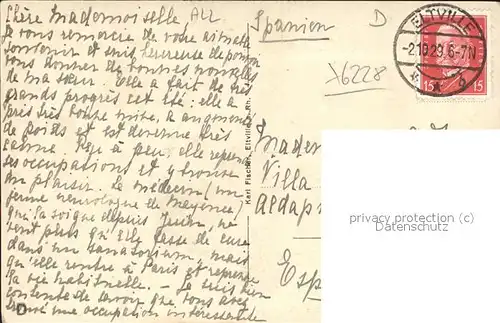 Chère Mademoiselle All
Je vous remercie de votre aimable
souvenir et suis heureuse de pouvoir
vous donner de bonnes nouvelles
de ma sœur. Elle a fait de très
grands progrès cet été: elle a
pris très bonne mine, a augmenté
de poids et est devenue très
calme. Peu à peu, elle reprend
ses occupations et y trouve
du plaisir. Le médecin (un
neurologue de Mayence)
qui la soigne depuis Juin, ne
veut plus qu'elle fasse de cure
dans un sanatorium, mais
qu'elle rentre à Paris et reprenne
la vie habituelle. – Je suis bien
contente de savoir que vous avez
trouvé une occupation intéressante
Karl Fischer, Eltville, Rh.
Spanien
D
16228
ELTVILLE
-2.10.29.6-7N
15 15
Madem
Villa
Aldap
Esp
privacy protection (c)
Datenschutz